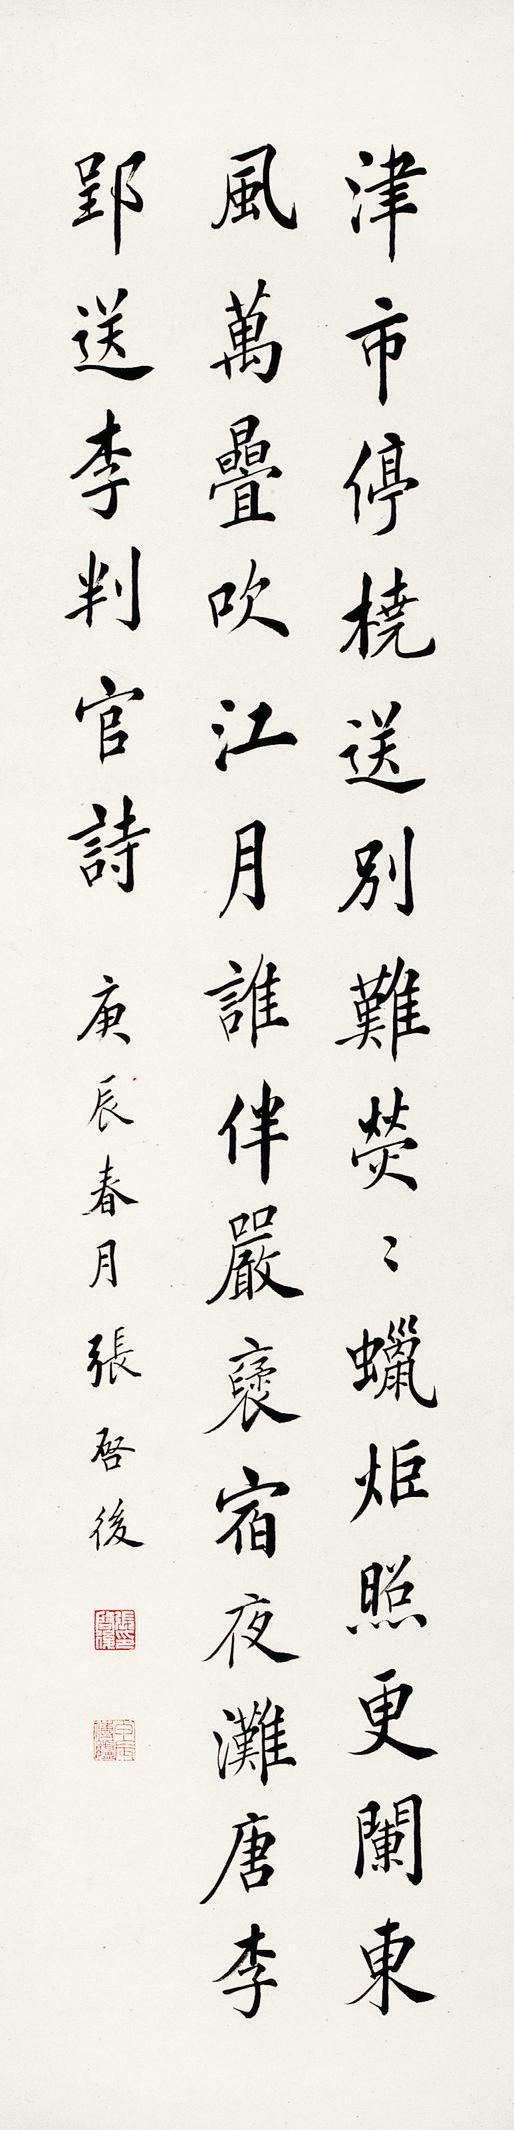 津市停橈送別難熒〻蠟炬照更闌東
風萬疊吹江月誰伴嚴褱宿夜灘唐李
郢送李判官詩 庚辰春月張啓後